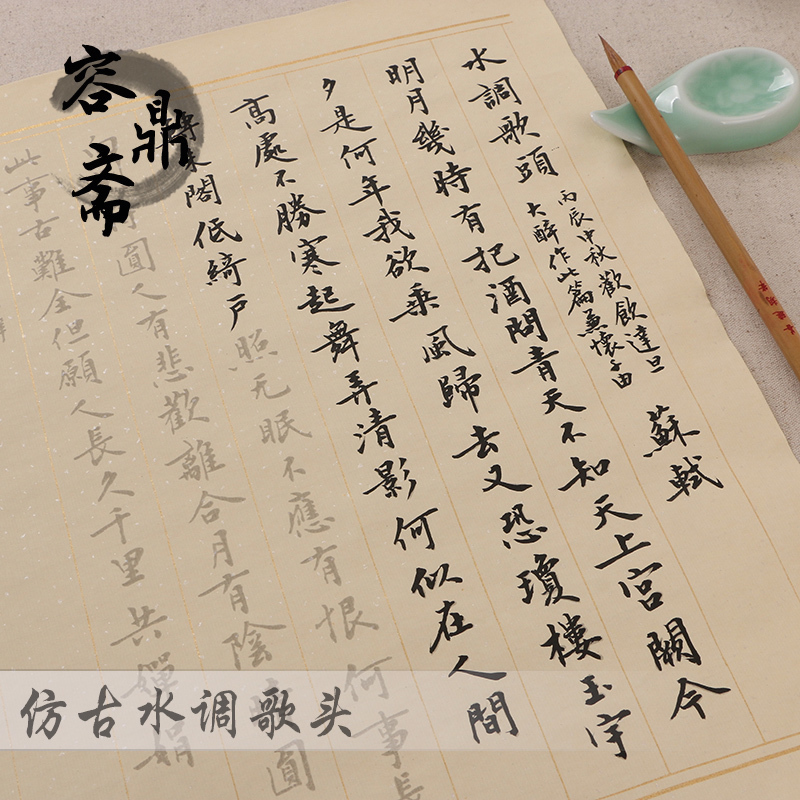 水調歌頭
丙辰中秋歡飲達旦
大醉作此篇兼懷子由
蘇軾
明月幾時有把酒問青天不知天上宮闕今
夕是何年我欲乘風歸去又恐瓊樓玉宇
高處不勝寒起舞弄清影何似在人間
朱閣低綺戶照无眠不應有恨何事長
圓人有悲歡離合月有陰圓
此事古難全但願人長久千里共嬋娟
容鼎斋
仿古水调歌头